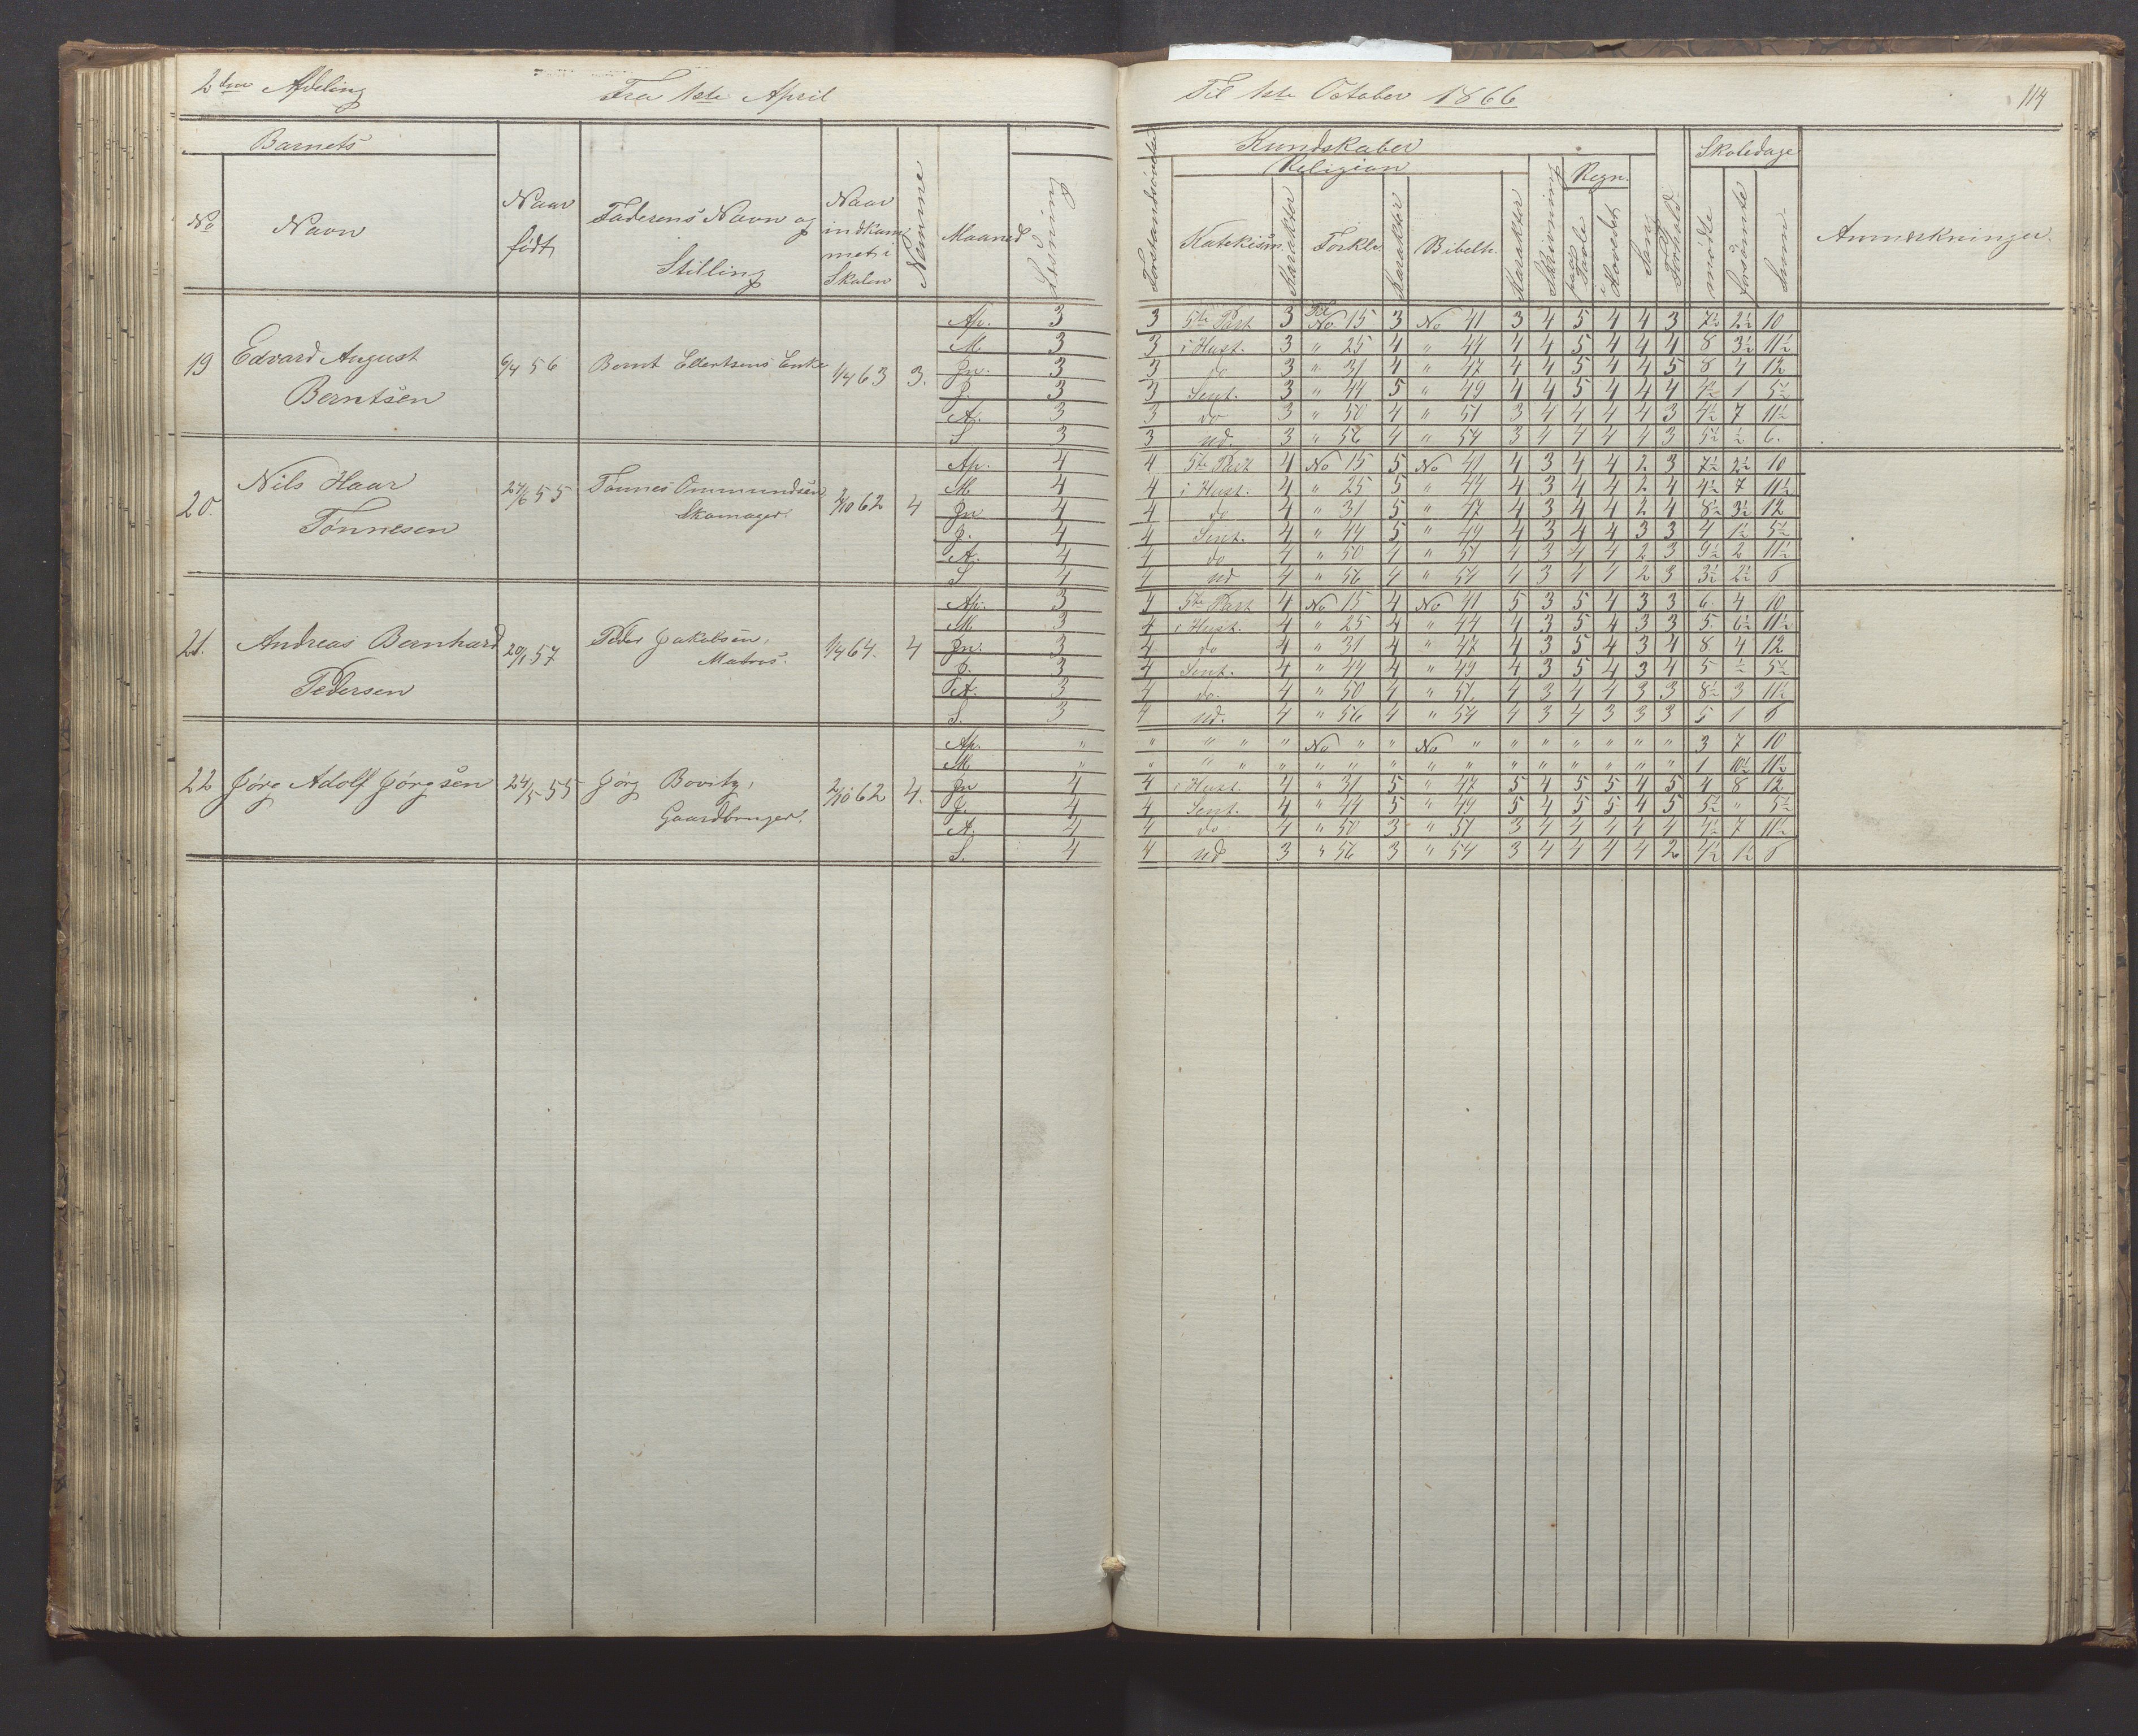 2den Afdeling Fra 1ste April Til 1ste October 1866 114
Barnets Kundskaber Skoledage
Religion Regn.
No Navn Naar født Faderens Navn og Stilling Naar indkommet i Skolen Nemme Maaned Læsning Forstandsøvelse Katekism. Karakter Forkl. Karakter Bibelh. Karakter Skrivning paa Tavle i Hovedet Sang Forhold mødte forsømte Sum Anmærkninger.
19 Edvard August Berntsen 6/4 56 Bernt Ellertsens Enke 1/4 63 3.
Ap. 3 3 5te Part 3 Til No 15 3 No 41 3 4 5 4 4 3 7½ 2½ 10
M. 3 3 i Hust. 3 " 25 4 " 44 4 4 5 4 4 4 8 3½ 11½
Jn. 3 3 do 3 " 31 4 " 47 4 4 5 4 4 5 8 4 12
J. 3 3 Sent. 3 " 44 5 " 49 4 4 5 4 4 4 4½ 1 5½
A. 3 3 do 3 " 50 4 " 51 3 4 4 4 4 3 4½ 7 11½
S 3 3 ud. 3 " 56 4 " 54 3 4 4 4 4 3 5½ ½ 6.
20. Nils Haar Tønnesen 27/6 55 Tønnes Ommundsen, Skomager. 2/10 62 4
Ap. 4 4 5te Part 4 No 15 5 No 41 4 3 4 4 2 3 7½ 2½ 10
M 4 4 i Hust. 4 " 25 5 " 44 4 3 4 4 2 4 4½ 7 11½
Jn 4 4 do 4 " 31 5 " 47 4 3 4 4 2 4 8½ 3½ 12
J. 4 4 Sent. 4 " 44 5 " 49 4 3 4 4 3 3 4 1½ 5½
A. 4 4 do 4 " 50 4 " 51 4 3 4 4 2 3 9½ 2 11½
S 4 4 ud 4 " 56 4 " 54 4 3 4 4 2 3 3½ 2½ 6
21. Andreas Bernhard Pedersen 20/1 57 Peder Jakobsen, Matros. 1/4 64. 4
Ap. 3 4 5te Part 4 No 15 4 No 41 5 3 5 4 3 3 6. 4 10
M 3 4 i Hust. 4 " 25 4 " 44 4 3 5 4 3 3 5. 6½ 11½
Jn. 3 4 do 4 " 31 4 " 47 4 3 5 4 3 4 8 4 12
J. 3 4 Sent. 4 " 44 4 " 49 4 3 5 4 3 4 5 ½ 5½
A. 3 4 do. 4 " 50 4 " 51 4 3 4 4 3 3 8½ 3 11½
S. 3 4 ud. 4 " 56 4 " 54 4 3 4 3 3 3 5 1 6
22 Jørg Adolf Jørgsen 24/5 55 Jørg Bovitz, Gaardbruger. 2/10 62 4.
Ap. " " " " " No " " No " " " " " " " 3 7 10
M " " " " " " " " " " " " " " " " 1 10½ 11½
Jn 4 4 i Hust. 4 " 31 5 " 47 5 4 5 5 4 5 4 8 12
J. 4 4 Sent. 4 " 44 5 " 49 5 4 5 5 4 5 5½ " 5½
A. 4 4 do 4 " 50 3 " 51 3 4 4 4 4 4 4½ 7 11½
S. 4 4 ud 3 " 56 3 " 54 3 4 4 4 4 2 4½ 1½ 6